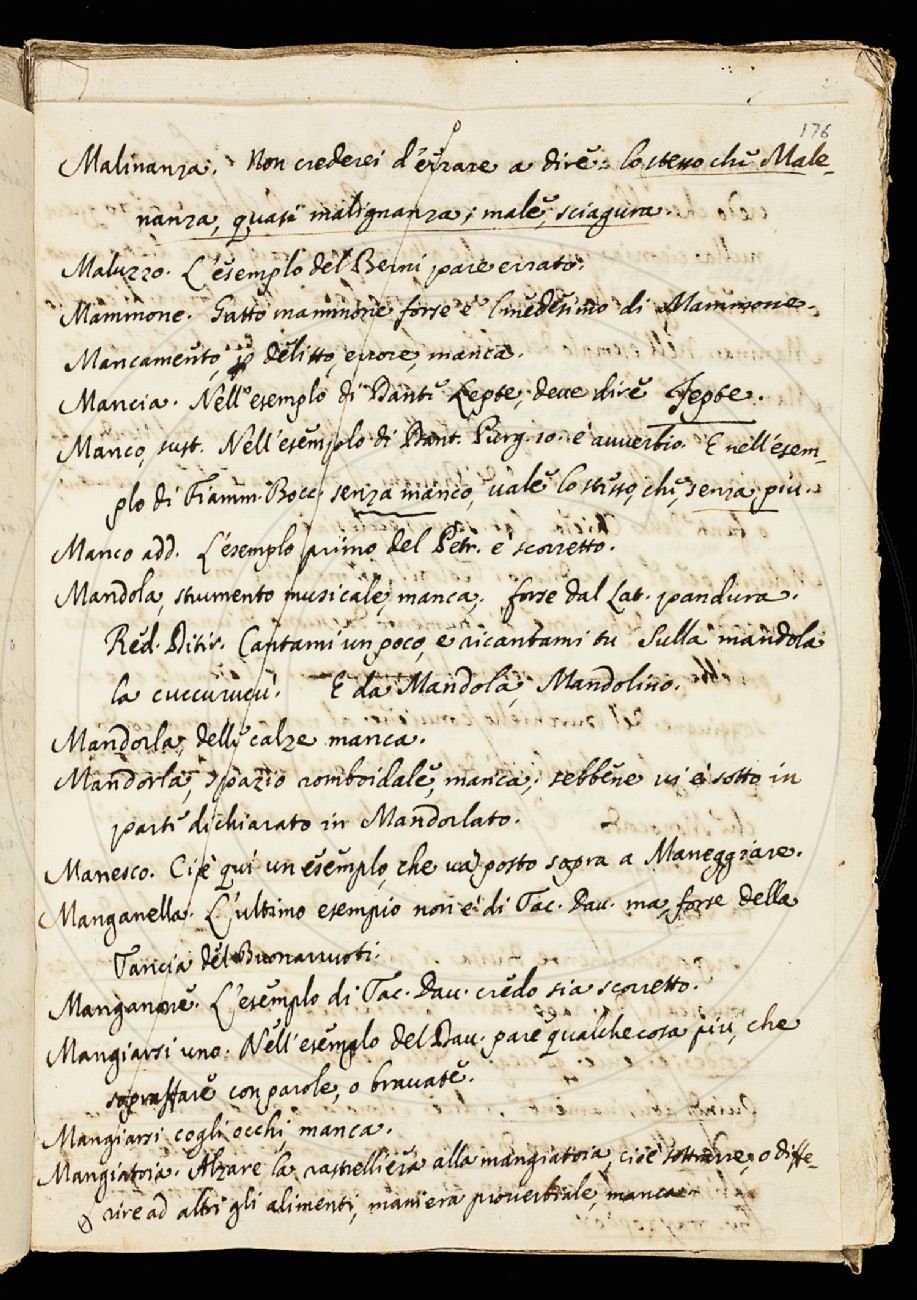 176
Malinanza. Non crederei d'errare a dire: lo stesso che Male-
nanza, quasi malignanza; male, sciagura.
Maluzzo. L'esemplo del Berni pare errato.
Mammone. Gatto mammone forse è l'medesimo di Mammone.
Mancamento, p delitto, errore, manca.
Mancia. Nell'esemplo di Dante Lepte, deve dire Jepte.
Manco, sust. Nell'esemplo di Dant. Purg. 10. è avverbio. E nell'esem-
plo di Fiamm. Bocc. senza manco, vale lo stesso, che, senza più.
Manco add. L'esemplo primo del Petr. è scorretto.
Mandola, strumento musicale, manca; forse dal Lat. pandura.
Red. Ditir. Cantami un poco, e ricantami tu Sulla mandola
la cuccurucù. E da Mandola, Mandolino.
Mandorla, delle calze manca.
Mandorla, spazio romboidale, manca; sebbene vi è sotto in
parte dichiarato in Mandorlato.
Manesco. Ci è quì un esemplo, che va posto sopra a Maneggiare.
Manganella. L'ultimo esempio non è di Tac. Dav. ma, forse della
Tancia del Buonarruoti.
Manganare. L'esemplo di Tac. Dav. credo sia scorretto.
Mangiarsi uno. Nell'esemplo del Dav. pare qualche cosa più, che
sopraffare con parole, o bravate.
Mangiarsi cogli occhi, manca.
Mangiatoia. Alzare la rastrelliera alla mangiatoia, cioè sottrarre, o diffe-
rire ad altri gli alimenti, maniera proverbiale, manca